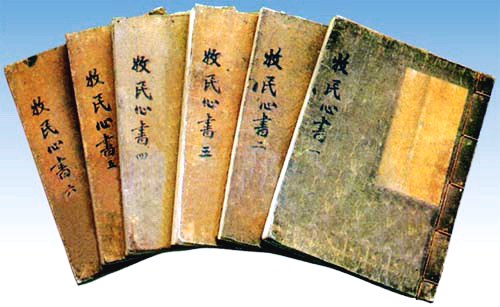 牧民心書六
牧民心書五
牧民心書四
牧民心書三
牧民心書二
牧民心書一